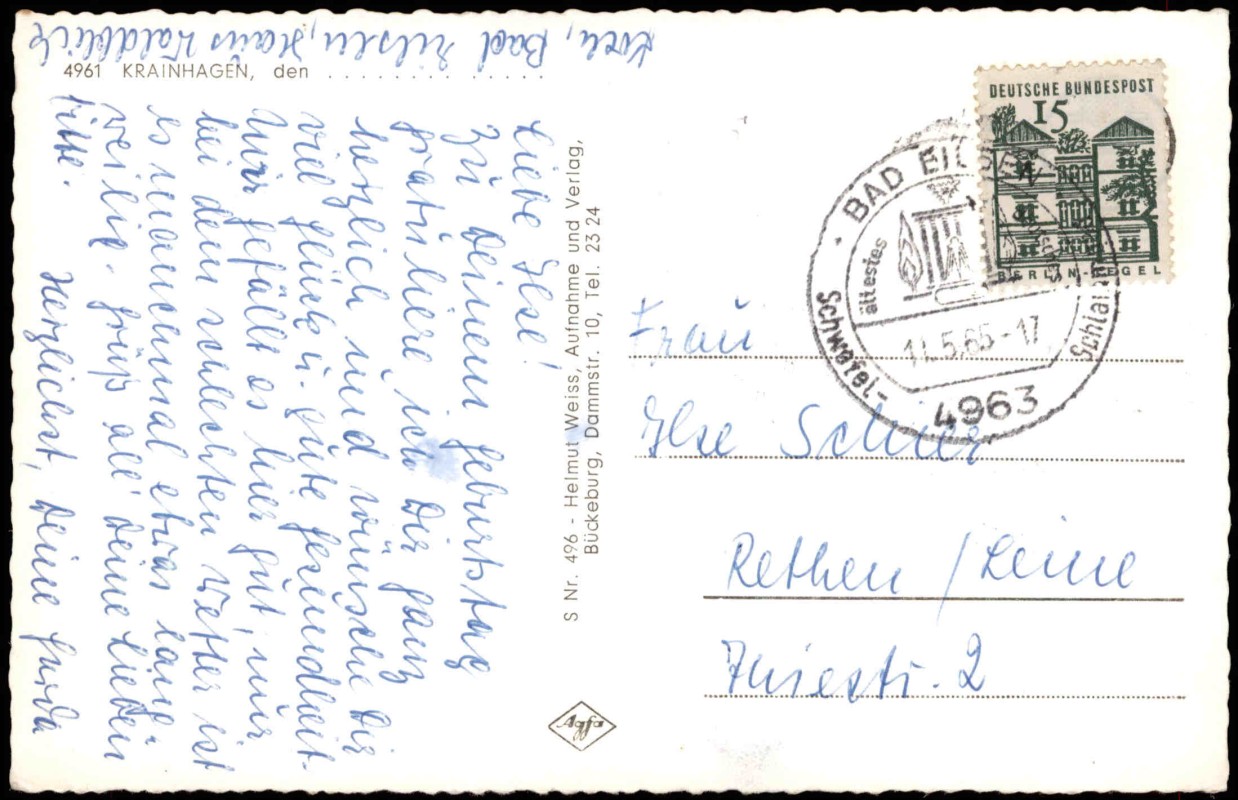 Koch, Bad Eilsen, Haus Waldblick
4961 KRAINHAGEN, den
Liebe Ilse!
Zu Deinem Geburtstag
gratuliere ich Dir ganz
herzlich und wünsche Dir
viel Glück u. gute Gesundheit.
Mir gefällt es hier gut, nur
bei dem schlechten Wetter ist
es manchmal etwas lang-
weilig. Grüß all' Deine Lieben
bitte.
Herzlichst, Deine Gerda
S Nr. 496 - Helmut Weiss, Aufnahme und Verlag,
Bückeburg, Dammstr. 10, Tel. 23 24
Agfa
DEUTSCHE BUNDESPOST
15
BERLIN-TEGEL
BAD EIL
ältestes
Schwefel-
Schla
5.65-17
4963
Frau
Ilse
Rethen / Leine
Thiestr. 2